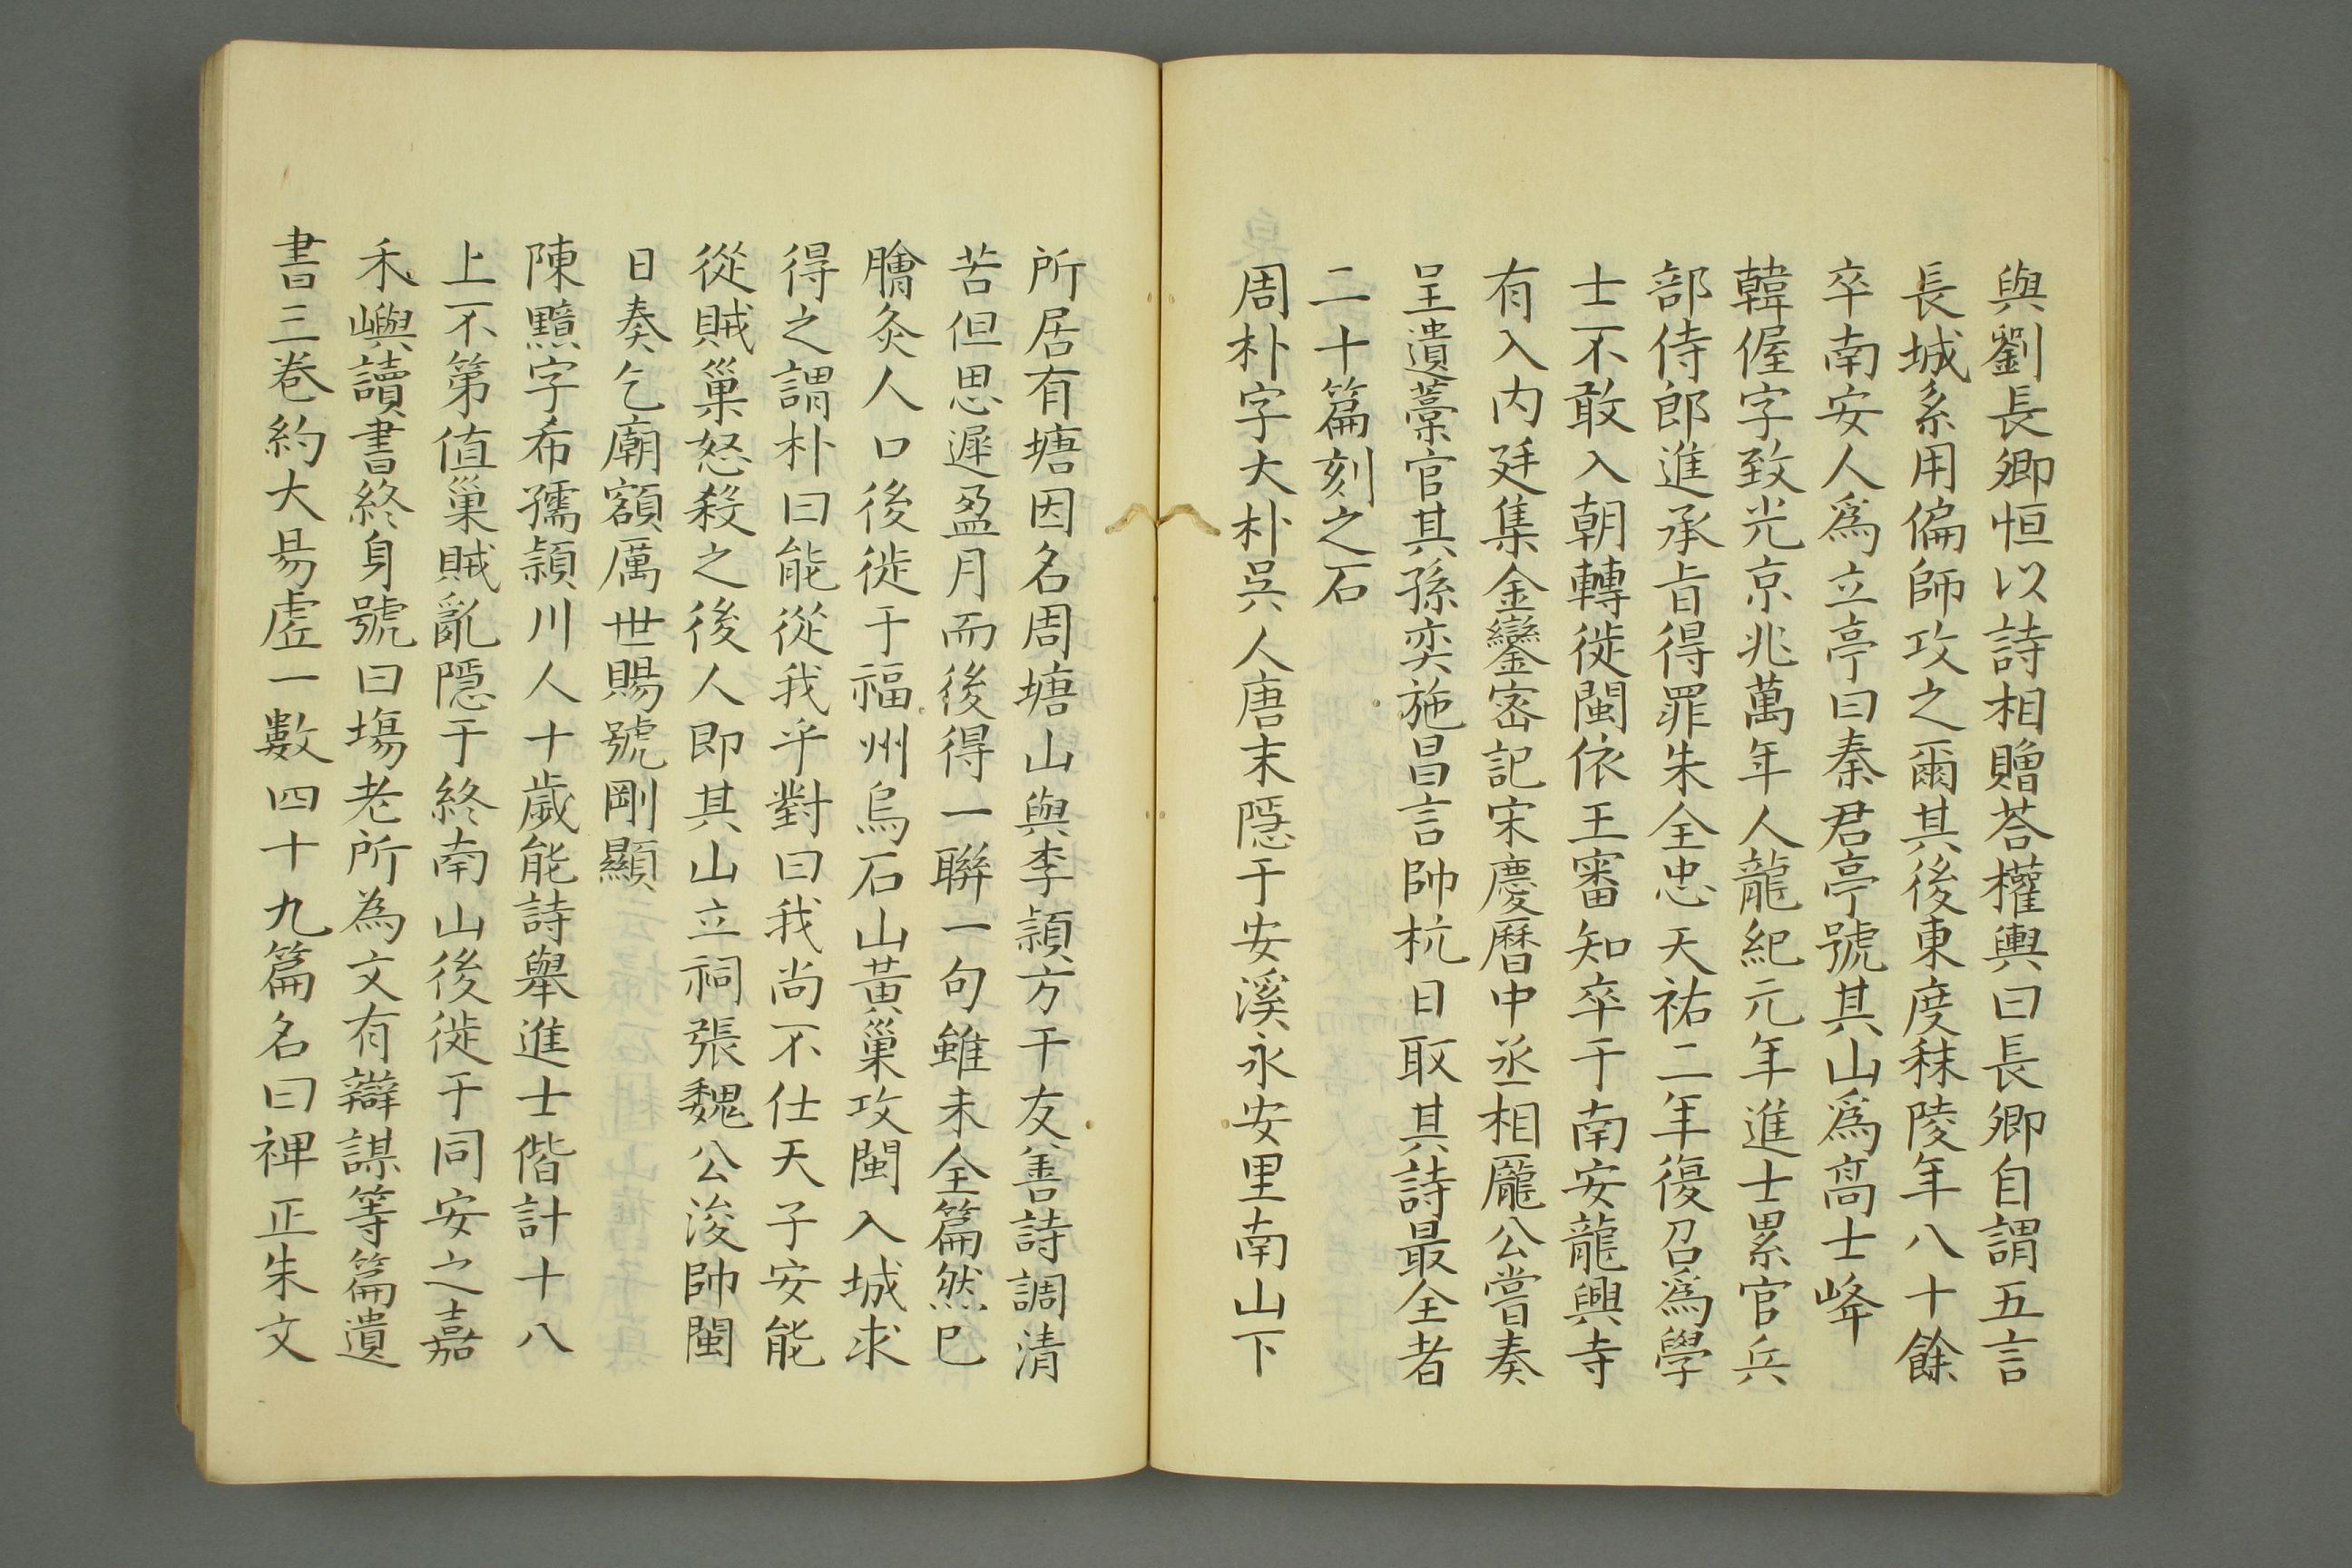 與劉長卿恒以詩相贈荅權輿曰長卿自謂五言
長城系用偏師攻之爾其後東度秣陵年八十餘
卒南安人爲立亭曰秦君亭號其山爲高士峰
韓偓字致光京兆萬年人龍紀元年進士累官兵
部侍郎進承旨得罪朱全忠天祐二年復召爲學
士不敢入朝轉徙閩依王審知卒于南安龍興寺
有入内廷集金鑾宻記宋慶曆中丞相龐公嘗奏
呈遺藁官其孫奕施昌言帥杭日取其詩最全者
二十篇刻之石
周朴字大朴吳人唐末隱于安溪永安里南山下
所居有塘因名周塘山與李頴方干友善詩調清
苦但思遲盈月而後得一聯一句雖未全篇然已
膾炙人口後徙于福州烏石山黄巢攻閩入城求
得之謂朴曰能從我乎對曰我尚不仕天子安能
從賊巢怒殺之後人即其山立祠張魏公浚帥閩
日奏乞廟額厲世賜號剛顯
陳黯字希孺頴川人十歲能詩舉進士偕計十八
上不第值巢賊亂隱于終南山後徙于同安之嘉
禾嶼讀書終身號曰塲老所為文有辯謀等篇遺
書三卷約大易虗一數四十九篇名曰裨正朱文